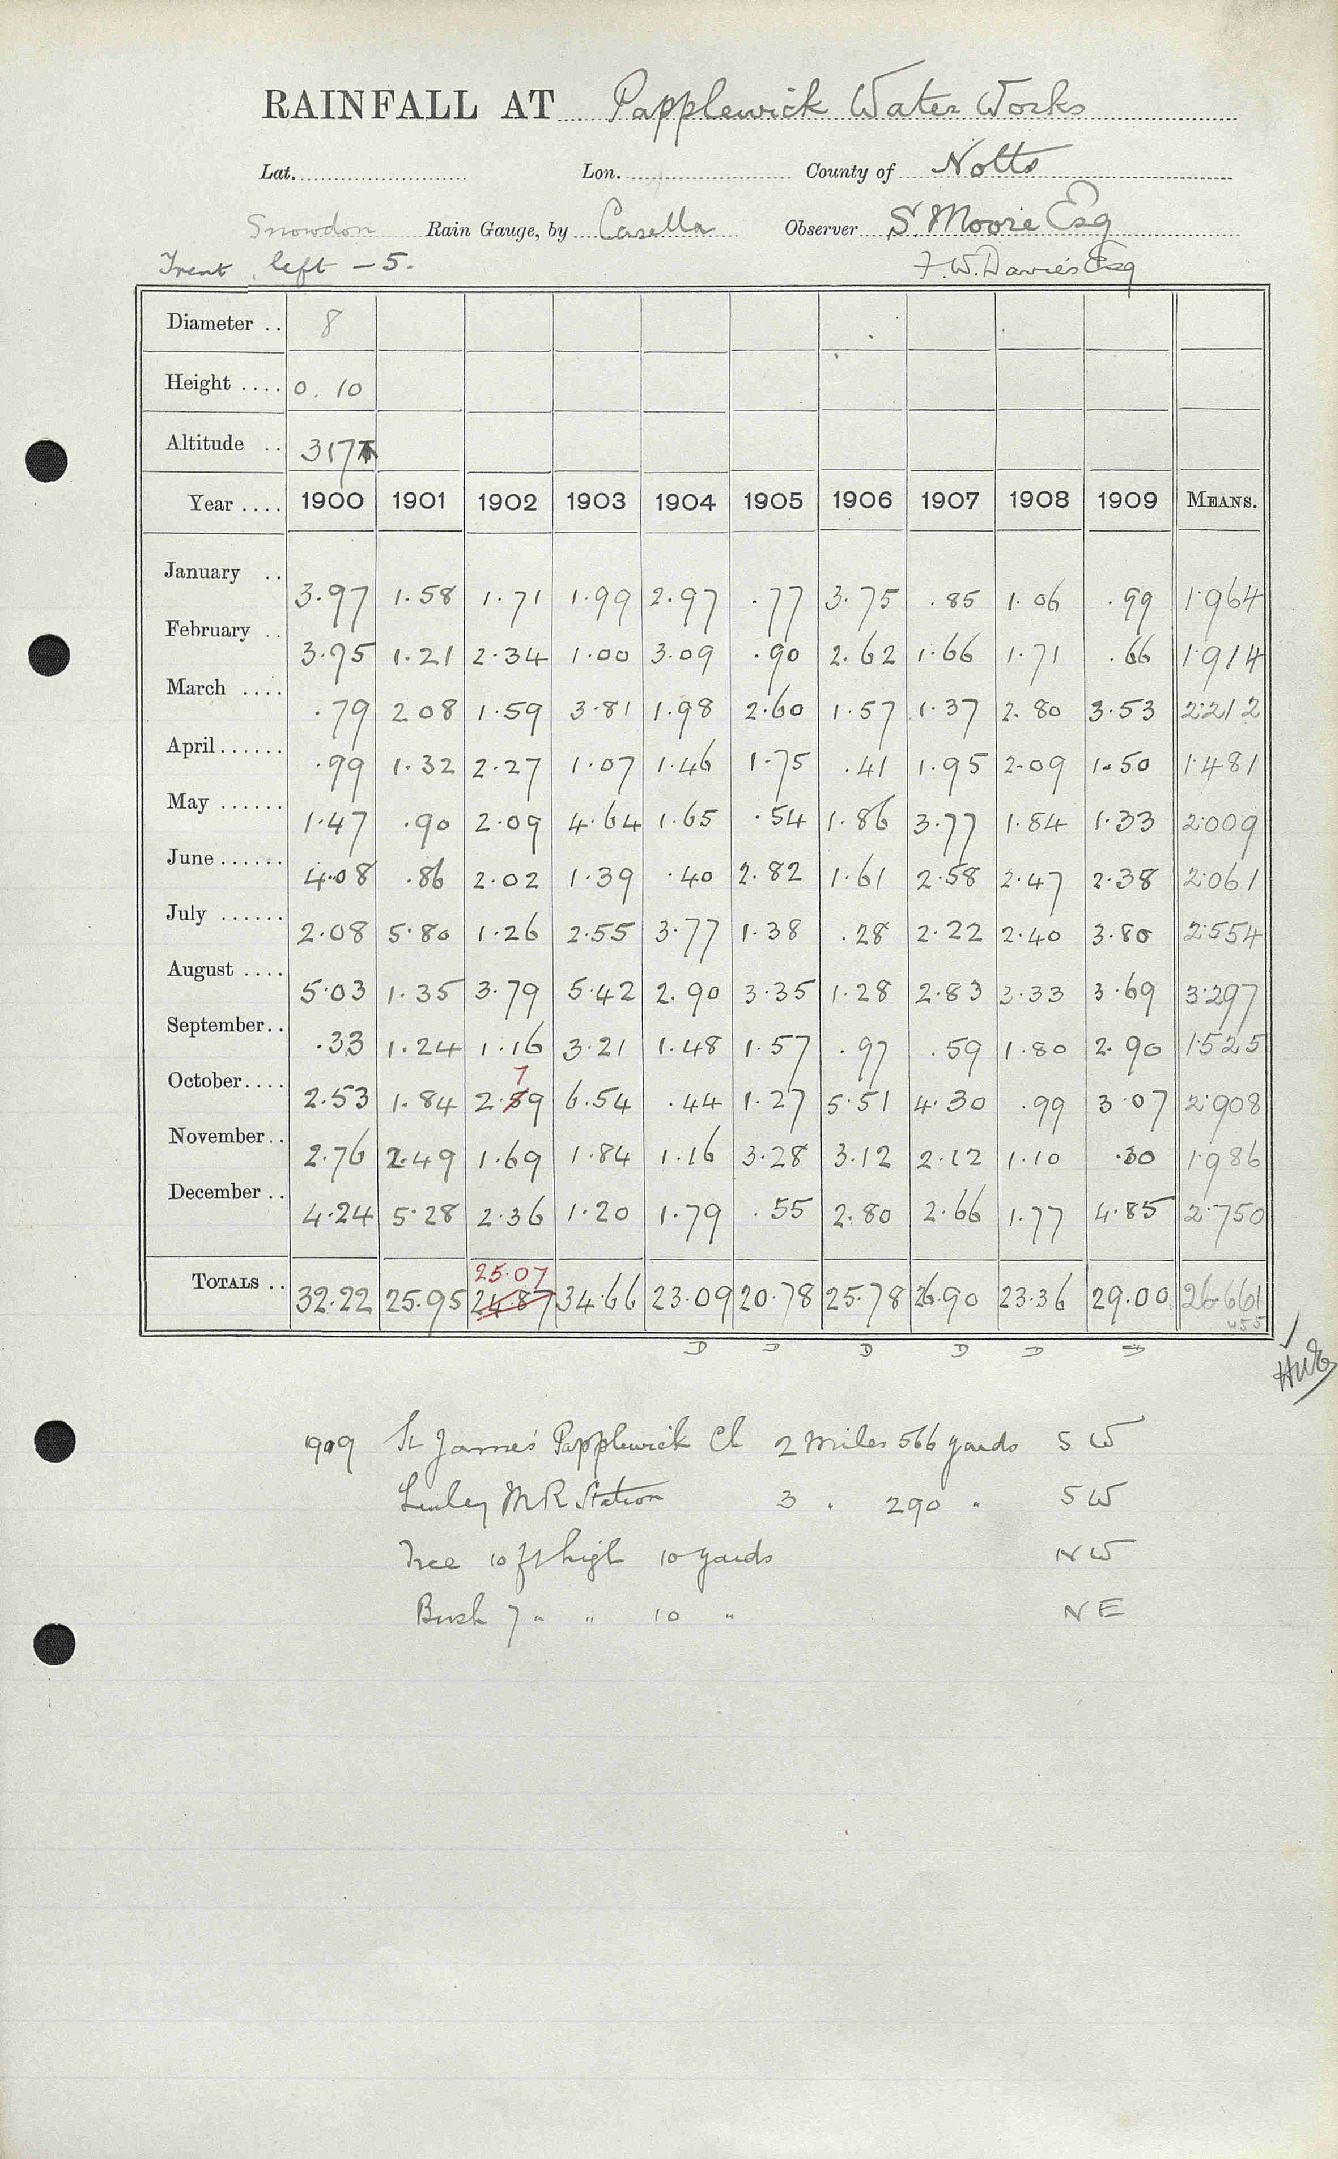 RAINFALL AT Papplewick Water Works
Lat. Lon. County of Notts
Snowdon Rain Gauge, by Casella Observer S. Moore Esq
Trent left - 5. F. W. Davies Esq
Diameter .. 8
Height .... 0. 10
Altitude .. 317
Year .... 1900 1901 1902 1903 1904 1905 1906 1907 1908 1909 MEANS.
January .. 3.97 1.58 1.71 1.99 2.97 .77 3.75 .85 1.06 .99 1.964
February .. 3.95 1.21 2.34 1.00 3.09 .90 2.62 1.66 1.71 .66 1.914
March .... .79 2 08 1.59 3.81 1.98 2.60 1.57 1.37 2.80 3.53 2.212
April ...... .99 1.32 2.27 1.07 1.46 1.75 .41 1.95 2.09 1.50 1.481
May ...... 1.47 .90 2.09 4.64 1.65 .54 1.86 3.77 1.84 1.33 2.009
June ...... 4.08 .86 2.02 1.39 .40 2.82 1.61 2.58 2.47 2.38 2.061
July ...... 2.08 5.80 1.26 2.55 3.77 1.38 .28 2.22 2.40 3.80 2.554
August .... 5.03 1.35 3.79 5.42 2.90 3.35 1.28 2.83 3.33 3.69 3.297
September .. .33 1.24 1.16 3.21 1.48 1.57 .97 .59 1.80 2.90 1.525
7
October .... 2.53 1.84 2.59 6.54 .44 1.27 5.51 4.30 .99 3.07 2.908
November .. 2.76 2.49 1.69 1.84 1.16 3.28 3.12 2.12 1.10 .30 1.986
December .. 4.24 5.28 2.36 1.20 1.79 .55 2.80 2.66 1.77 4.85 2.750
25.07
TOTALS .. 32.22 25.95 24.87 34.66 23.09 20.78 25.78 26.90 23.36 29.00 26.661
455
D D D D D D
1909 St James' Papplewick Ch 2 miles 566 yards SW
Linley MR Station 3 . 290 " SW
Tree 10 ft high 10 yards NW
Bush 7 " " 10 " NE